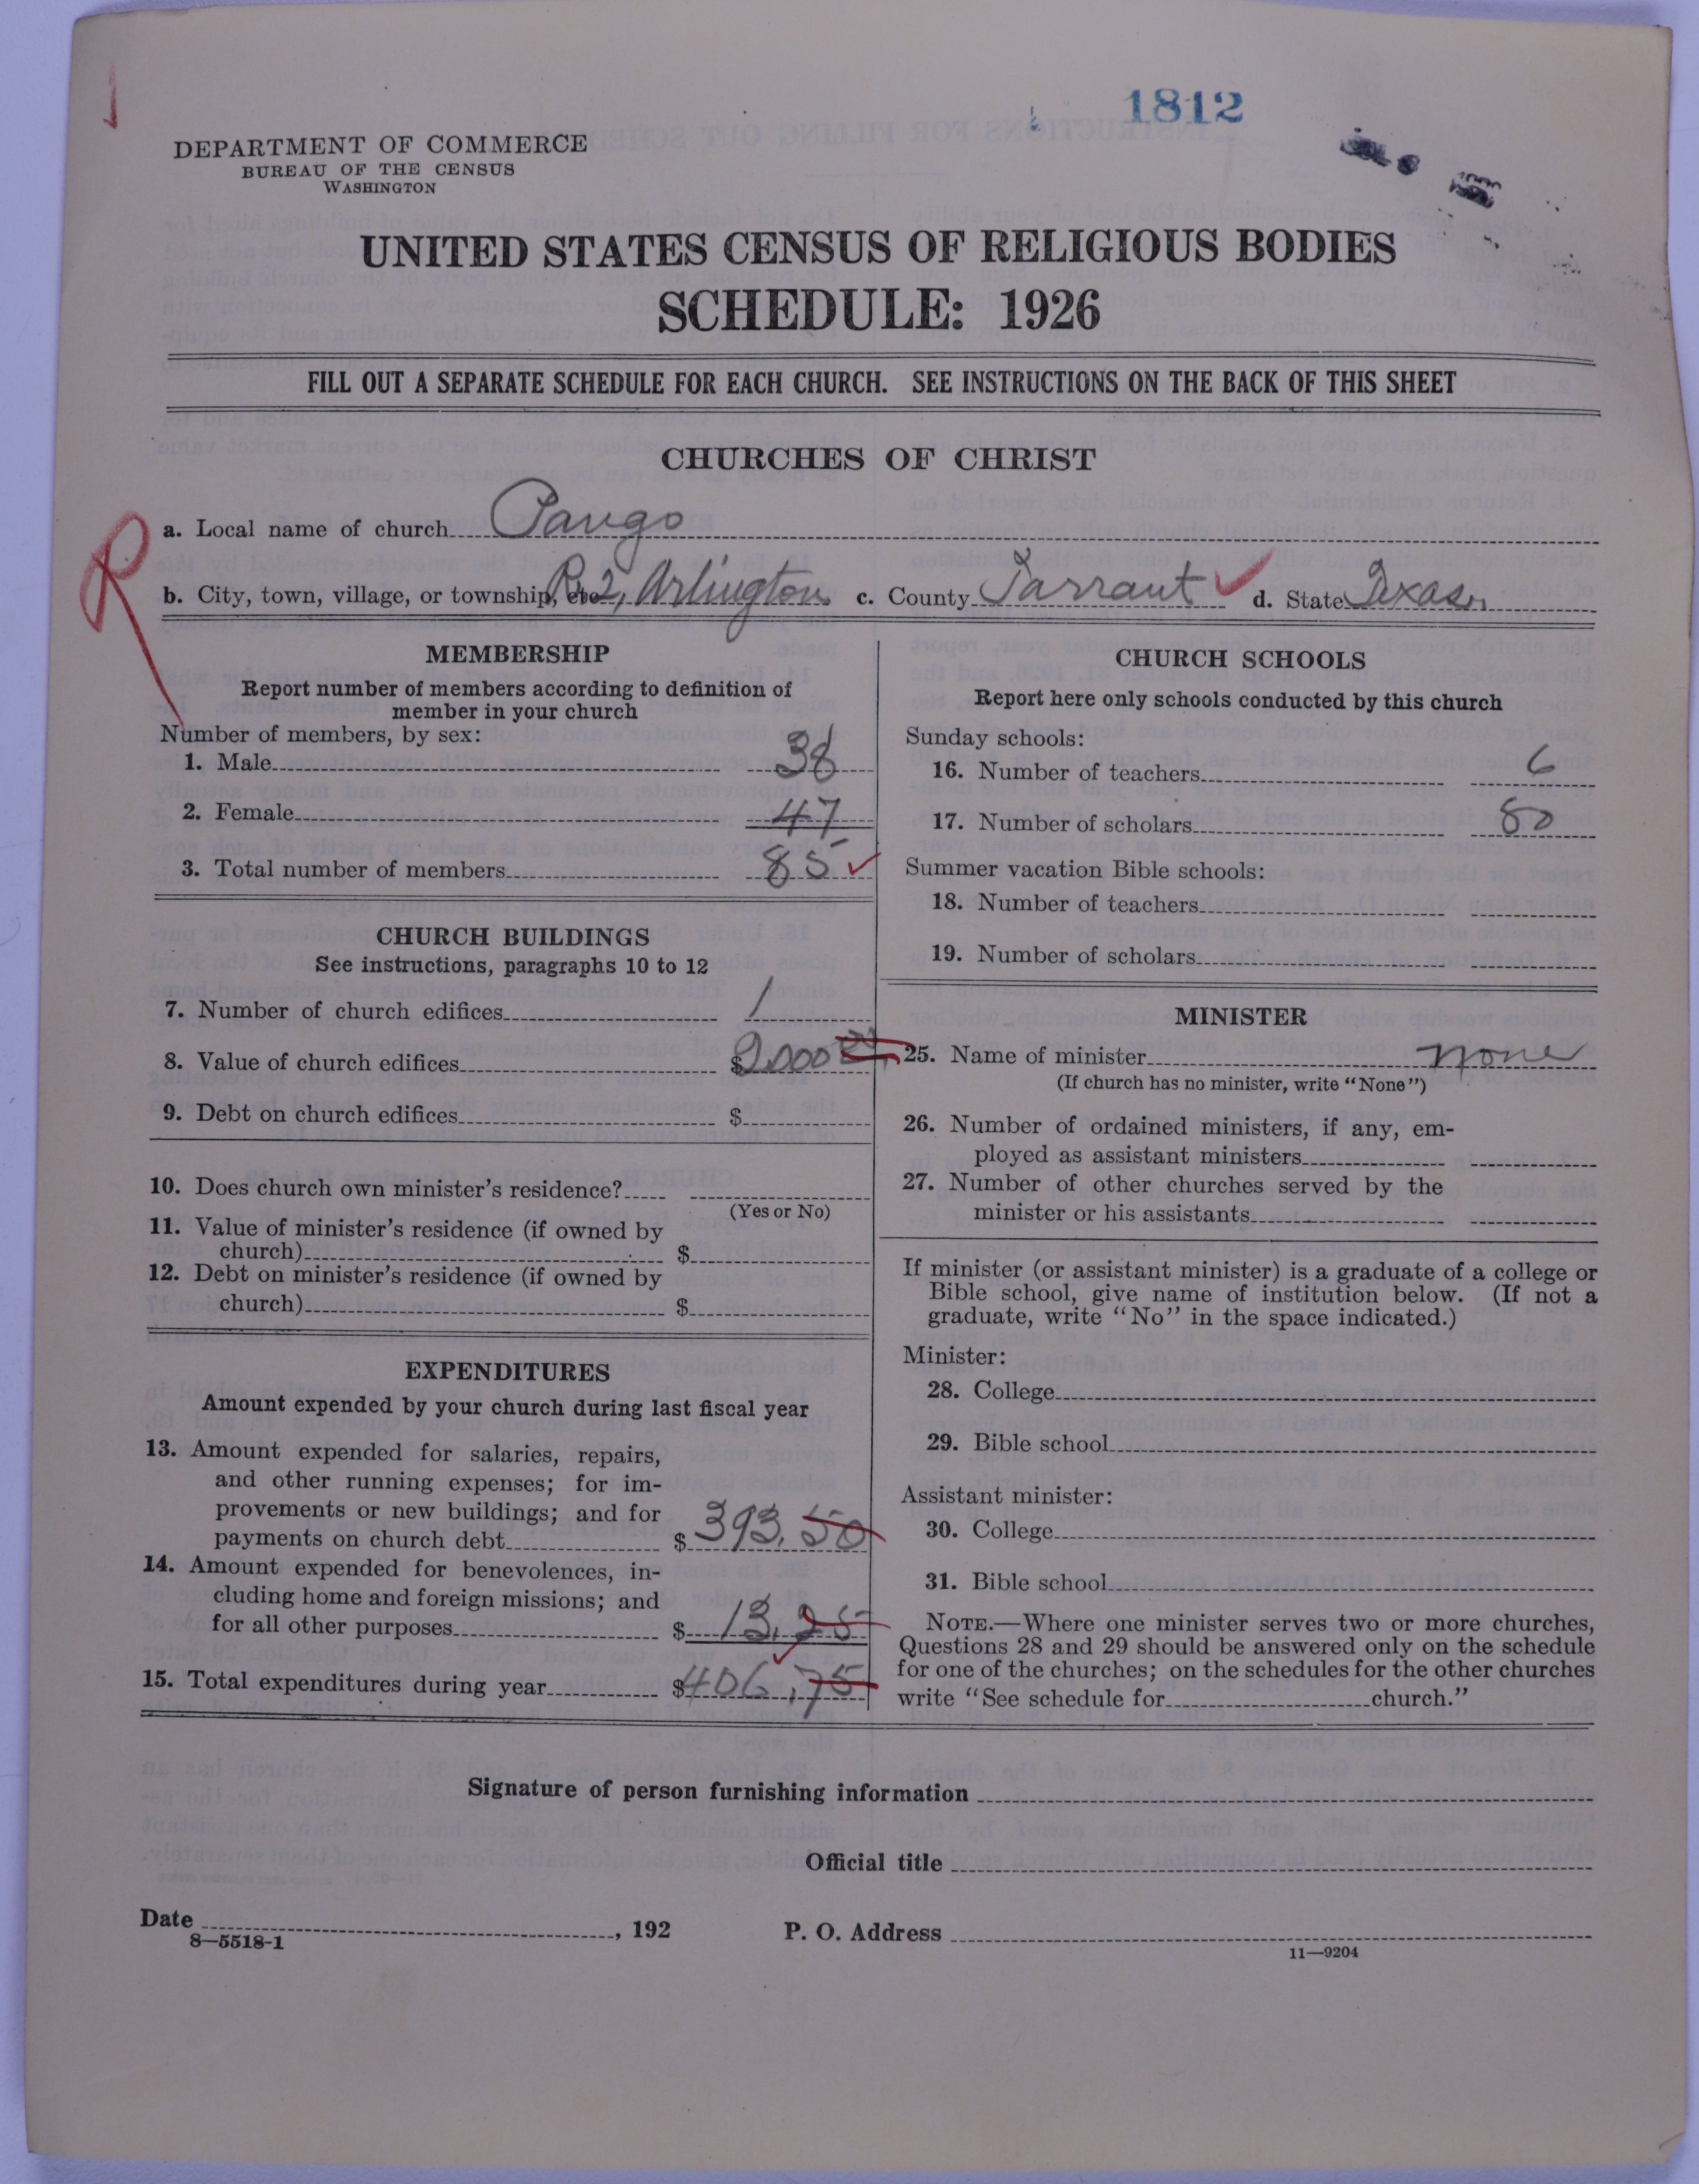 1812
DEPARTMENT OF COMMERCE
BUREAU OF THE CENSUS
WASHINGTON
UNITED STATES CENSUS OF RELIGIOUS BODIES
SCHEDULE: 1926
FILL OUT A SEPARATE SCHEDULE FOR EACH CHURCH. SEE INSTRUCTIONS ON THE BACK OF THIS SHEET
CHURCHES OF CHRIST
R
a. Local name of church
b. City, town, village, or township, etc. R 2, Arlington c. County Tarrant d. State Texas
MEMBERSHIP
Report number of members according to definition of
member in your church
Number of members, by sex:
1. Male 38
2. Female 47
3. Total number of members 85
CHURCH BUILDINGS
See instructions, paragraphs 10 to 12
7. Number of church edifices 1
8. Value of church edifices $2000
9. Debt on church edifices $
10. Does church own minister's residence?
(Yes or No)
11. Value of minister's residence (if owned by
church) $
12. Debt on minister's residence (if owned by
church) $
EXPENDITURES
Amount expended by your church during last fiscal year
13. Amount expended for salaries, repairs,
and other running expenses; for im-
provements or new buildings; and for
payments on church debt $ 393.50
14. Amount expended for benevolences, in-
cluding home and foreign missions; and
for all other purposes $ 13.25
15. Total expenditures during year $406.75
CHURCH SCHOOLS
Report here only schools conducted by this church
Sunday schools:
16. Number of teachers 6
17. Number of scholars 80
Summer vacation Bible schools:
18. Number of teachers
19. Number of scholars
MINISTER
25. Name of minister none
(If church has no minister, write "None")
26. Number of ordained ministers, if any, em-
ployed as assistant ministers
27. Number of other churches served by the
minister or his assistants
If minister (or assistant minister) is a graduate of a college or
Bible school, give name of institution below. (If not a
graduate, write "No" in the space indicated.)
Minister:
28. College
29. Bible school
Assistant minister:
30. College
31. Bible school
NOTE.—Where one minister serves two or more churches,
Questions 28 and 29 should be answered only on the schedule
for one of the churches; on the schedules for the other churches
write "See schedule for church."
Signature of person furnishing information
Official title
Date , 192
P. O. Address
8—5518-1
11—9204